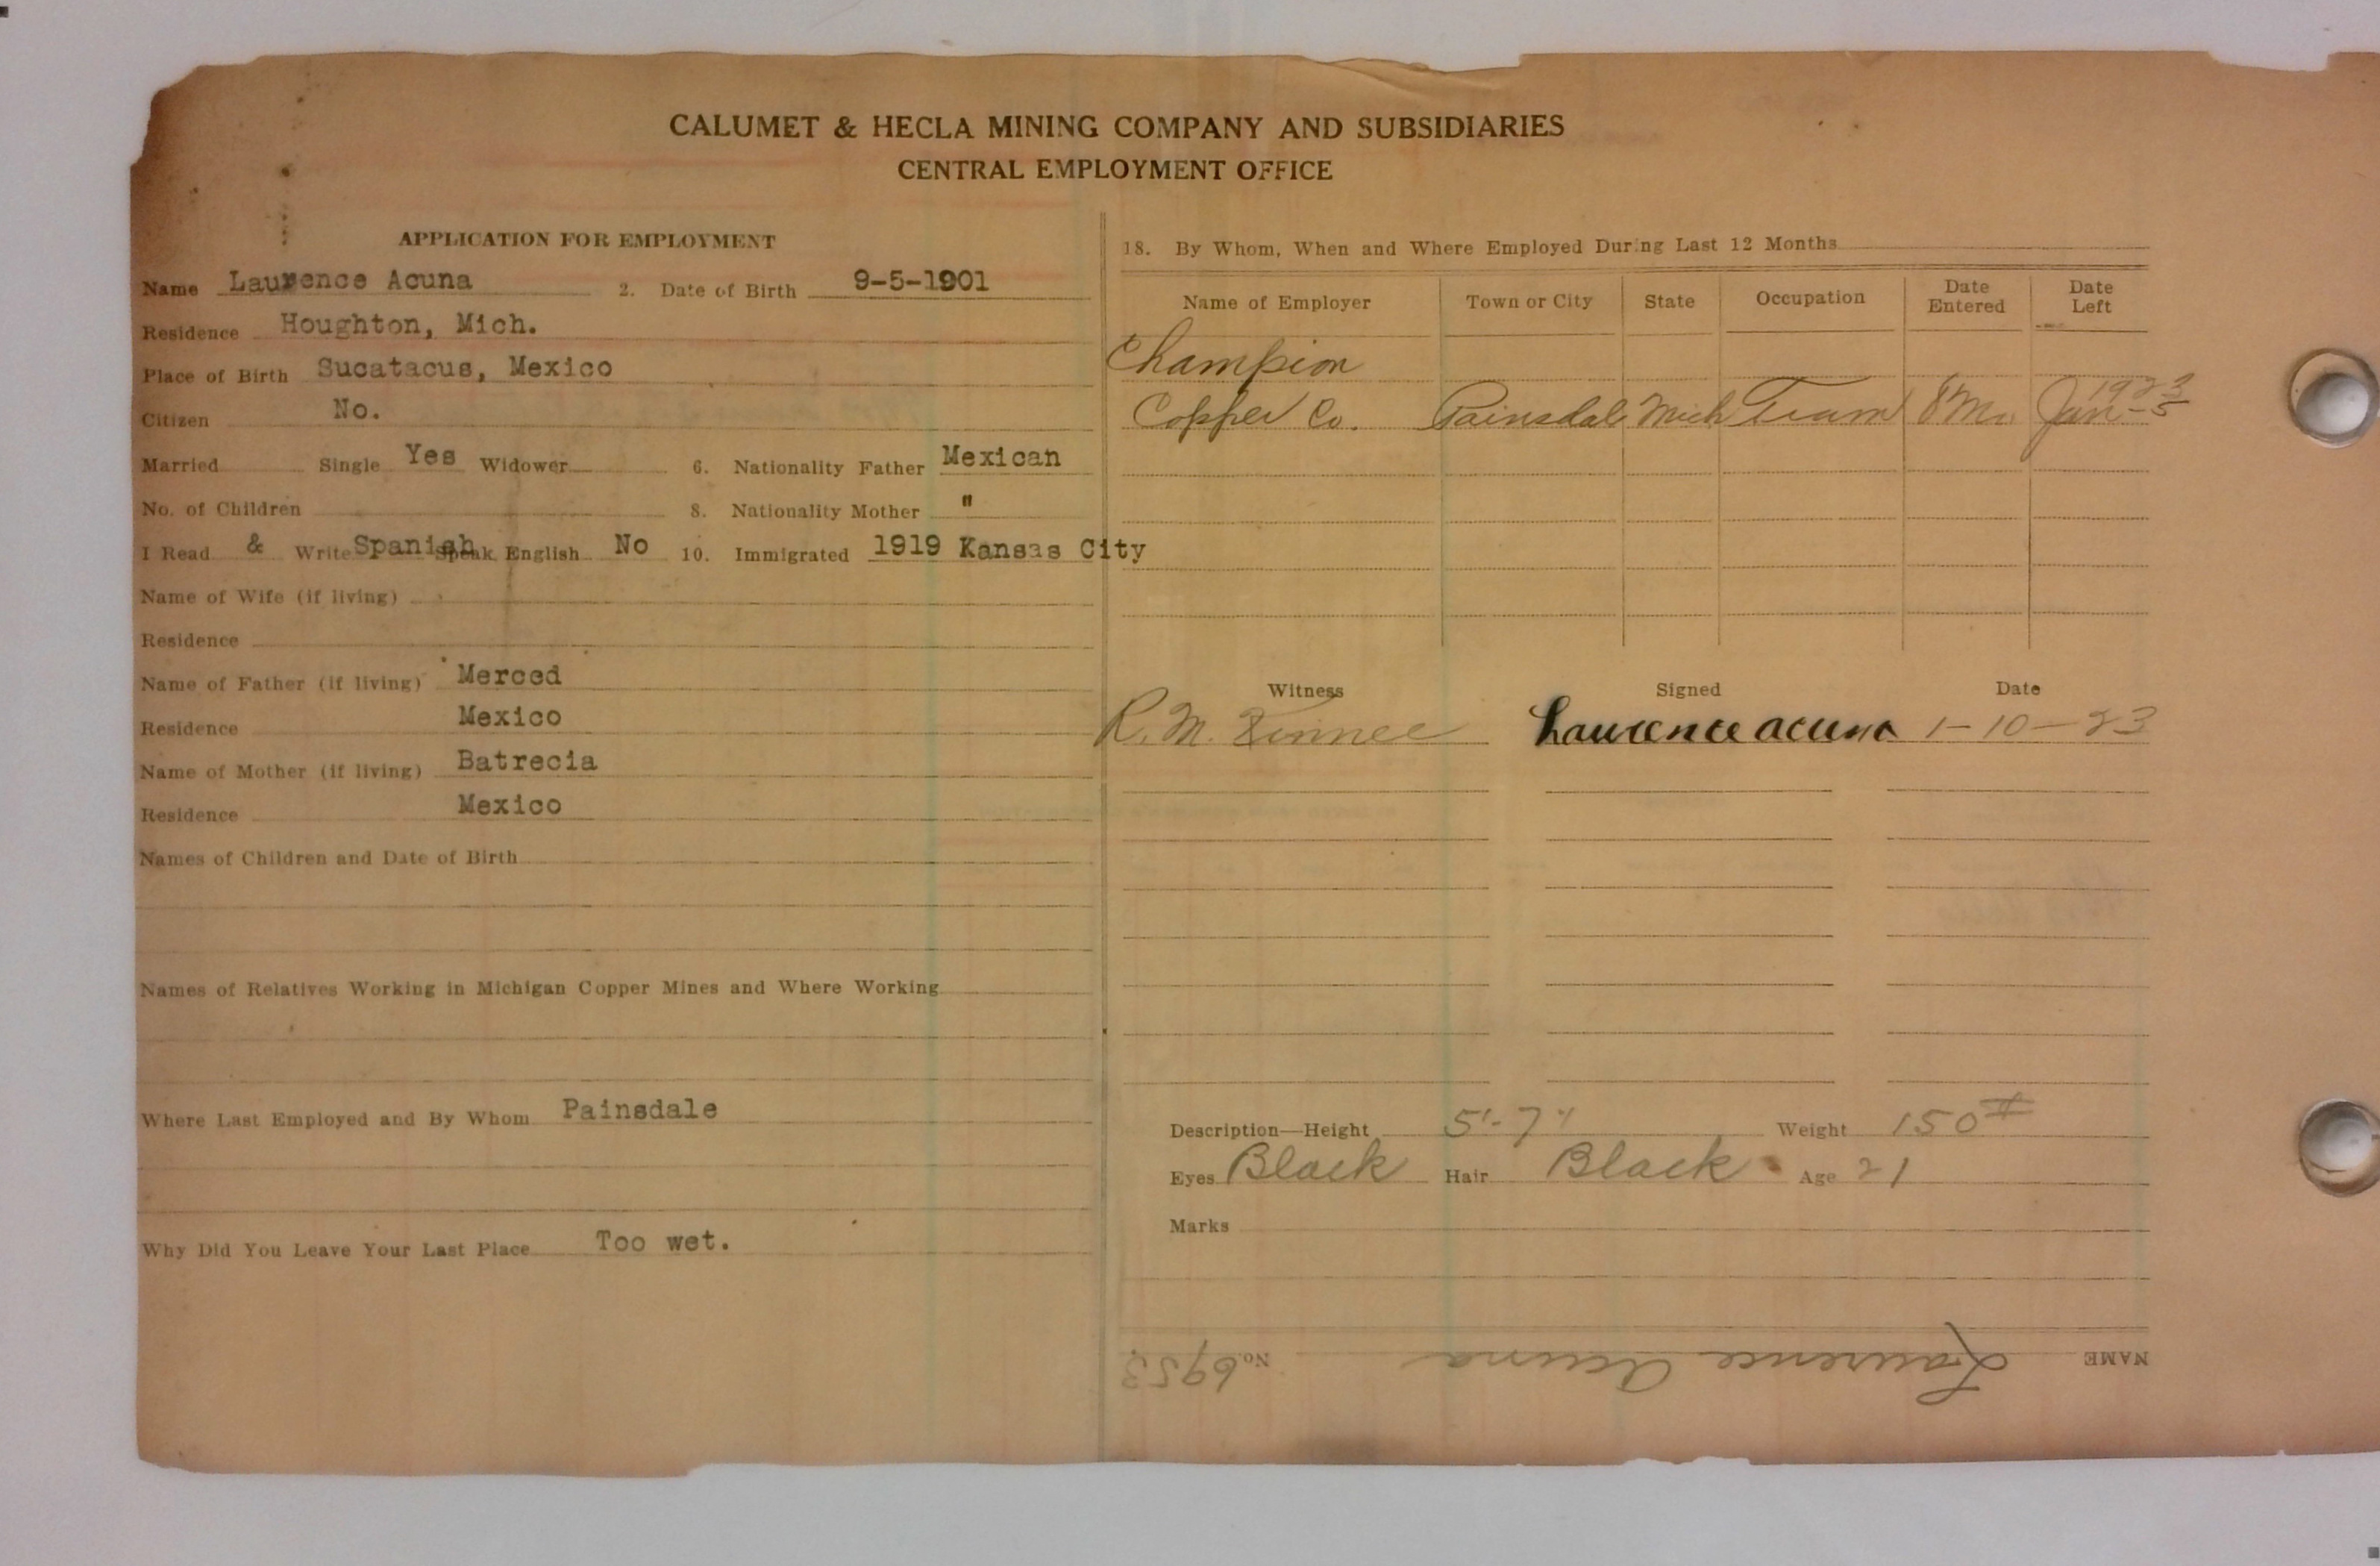 CALUMET & HECLA MINING COMPANY AND SUBSIDIARIES
CENTRAL EMPLOYMENT OFFICE
APPLICATION FOR EMPLOYMENT
Name Laurence Acuna 2. Date of Birth 9-5-1901
Residence Houghton, Mich.
Place of Birth Sucatacus, Mexico
Citizen No.
Married Single Yes Widower 6. Nationality Father Mexican
No. of Children 8. Nationality Mother "
I Read & Write Spanish Speak English No 10. Immigrated 1919 Kansas City
Name of Wife (if living)
Residence
Name of Father (if living) Merced
Residence Mexico
Name of Mother (if living) Batrecia
Residence Mexico
Names of Children and Date of Birth
Names of Relatives Working in Michigan Copper Mines and Where Working
Where Last Employed and By Whom Painsdale
Why Did You Leave Your Last Place Too wet.
18. By Whom, When and Where Employed During Last 12 Months
Name of Employer Town or City State Occupation Date Entered Date Left
Champion
Copper Co. Painsdale Mich Tram 8 Mo. Jan-5 1923
Witness Signed Date
R. M. Laurence acuna 1-10-23
Description—Height 5'-7" Weight 150#
Eyes Black Hair Black Age 21
Marks
NAME Laurence Acuna No. 6953